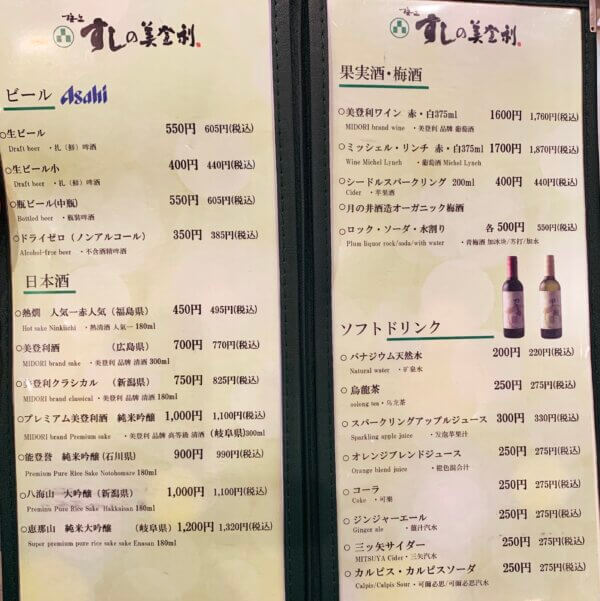 極上
すしの美登利
ビール Asahi
○生ビール 550円 605円(税込)
Draft beer ・扎(鲜)啤酒
○生ビール小 400円 440円(税込)
Draft beer ・扎(鲜)啤酒
○瓶ビール(中瓶) 550円 605円(税込)
Bottled beer ・瓶装啤酒
○ドライゼロ(ノンアルコール) 350円 385円(税込)
Alcohol-free beer ・不含酒精啤酒
日本酒
○熱燗 人気一赤人気(福島県) 450円 495円(税込)
Hot sake Ninkiichi ・熱清酒 人気一 180ml
○美登利酒 (広島県) 700円 770円(税込)
MIDORI brand sake ・美登利 品牌 清酒 300ml
○美登利クラシカル (新潟県) 750円 825円(税込)
MIDORI brand classical ・美登利 品牌 清酒 180ml
○プレミアム美登利酒 純米吟醸 1,000円 1,100円(税込)
MIDORI brand Premium sake ・美登利 品牌 高等級 清酒 (岐阜県)300ml
○能登誉 純米吟醸(石川県) 900円 990円(税込)
Premium Pure Rice Sake Notohomare 180ml
○八海山 大吟醸(新潟県) 1,000円 1,100円(税込)
Premium Pure Rice Sake Hakkaisan 180ml
○恵那山 純米大吟醸 (岐阜県) 1,200円 1,320円(税込)
Super premium pure rice sake sake Enasan 180ml
極上
すしの美登利
果実酒・梅酒
○美登利ワイン 赤・白375ml 1600円 1,760円(税込)
MIDORI brand wine ・美登利 品牌 葡萄酒
○ミッシェル・リンチ 赤・白375ml 1700円 1,870円(税込)
Wine Michel Lynch ・葡萄酒 Michel Lynch
○シードルスパークリング 200ml 400円 440円(税込)
Cider ・苹果酒
○月の井酒造オーガニック梅酒
○ロック・ソーダ・水割り 各500円 550円(税込)
Plum liquor rock/soda/with water ・青梅酒 加冰块/苏打/加水
ソフトドリンク
○バナジウム天然水 200円 220円(税込)
Natural water ・矿泉水
○烏龍茶 250円 275円(税込)
oolong tea・乌龙茶
○スパークリングアップルジュース 300円 330円(税込)
Sparkling apple juice ・发泡苹果汁
○オレンジブレンドジュース 250円 275円(税込)
Orange blend juice ・橙色混合汁
○コーラ 250円 275円(税込)
Coke ・可樂
○ジンジャーエール 250円 275円(税込)
Ginger ale ・薑汁汽水
○三ッ矢サイダー 250円 275円(税込)
MITSUYA Cider・三矢汽水
○カルピス・カルピスソーダ 250円 275円(税込)
Calpis/Calpis Sour ・可爾必思/可爾必思汽水